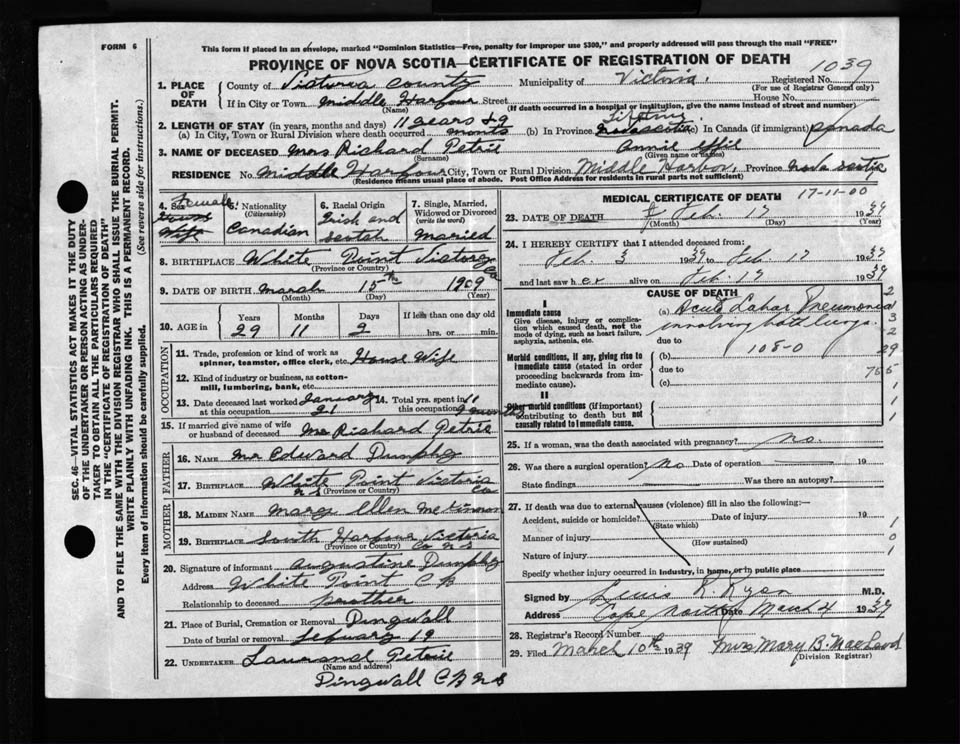 FORM 6
This form if placed in an envelope, marked "Dominion Statistics—Free, penalty for improper use $300," and properly addressed will pass through the mail "FREE"
PROVINCE OF NOVA SCOTIA—CERTIFICATE OF REGISTRATION OF DEATH
1039
1. PLACE OF DEATH
County of Victoria County Municipality of Victoria. Registered No.
(For use of Registrar General only)
If in City or Town Middle Harbour Street House No.
(Name) (If death occurred in a hospital or institution, give the name instead of street and number)
2. LENGTH OF STAY (in years, months and days) 11 years & 9 Lifetime
(a) In City, Town or Rural Division where death occurred months (b) In Province Nova Scotia (c) In Canada (if immigrant) Canada
3. NAME OF DECEASED Mrs Richard Petrie Annie Effie
(Surname) (Given name or names)
RESIDENCE No. Middle Harbour City, Town or Rural Division Middle Harbor, Province Nova Scotia
(Residence means usual place of abode. Post Office Address for residents in rural parts not sufficient)
4. Sex Female House Wife
5. Nationality (Citizenship) Canadian
6. Racial Origin Irish and Scotch
7. Single, Married, Widowed or Divorced (write the word) Married
8. BIRTHPLACE White Point Victoria Co
(Province or Country)
9. DATE OF BIRTH March 15th 1909
(Month) (Day) (Year)
10. AGE in Years Months Days If less than one day
29 11 2 hrs. or min.
OCCUPATION
11. Trade, profession or kind of work as spinner, teamster, office clerk, etc. House Wife
12. Kind of industry or business, as cotton-mill, lumbering, bank, etc.
13. Date deceased last worked at this occupation January 21
14. Total yrs. spent in this occupation 11 9 months
15. If married give name of wife or husband of deceased Mr Richard Petrie
FATHER
16. NAME Mr Edward Dunphy
17. BIRTHPLACE White Point Victoria Co N S
(Province or Country)
MOTHER
18. MAIDEN NAME Mary Ellen McKinnon
19. BIRTHPLACE South Harbour Victoria Co N S
(Province or Country)
20. Signature of informant Augustine Dunphy
Address White Point C B
Relationship to deceased brother
21. Place of Burial, Cremation or Removal Dingwall
Date of burial or removal February 19
22. UNDERTAKER Laurand Petrie
(Name and address)
Dingwall C B N S
MEDICAL CERTIFICATE OF DEATH
17-11-00
23. DATE OF DEATH Feb. 17 1939
(Month) (Day) (Year)
24. I HEREBY CERTIFY that I attended deceased from:
Feb. 3 1939 to Feb. 17 1939
and last saw her alive on Feb. 17 1939
CAUSE OF DEATH
I
Immediate cause
Give disease, injury or complication which caused death, not the mode of dying, such as heart failure, asphyxia, asthenia, etc.
(a) Acute Lobar Pneumonia
involving both lungs.
due to
Morbid conditions, if any, giving rise to immediate cause (stated in order proceeding backwards from immediate cause).
(b) 108-0
due to
(c)
II
Other morbid conditions (if important) contributing to death but not causally related to immediate cause.
2
3
2
29
765
1
1
1
25. If a woman, was the death associated with pregnancy? No.
26. Was there a surgical operation? No Date of operation 19
State findings Was there an autopsy?
27. If death was due to external causes (violence) fill in also the following:—
Accident, suicide or homicide? Date of injury 19
(State which)
Manner of injury
(How sustained)
Nature of injury
1
0
1
Specify whether injury occurred in industry, in home, or in public place
Signed by Lewis R. Ryan M.D.
Address Cape North Date March 4 1939
28. Registrar's Record Number
29. Filed March 10th 1939 Mrs Mary B. MacLeod
(Division Registrar)
SEC. 46—VITAL STATISTICS ACT MAKES IT THE DUTY
OF THE UNDERTAKER OR PERSON ACTING AS UNDERTAKER TO OBTAIN ALL THE PARTICULARS REQUIRED
IN THE "CERTIFICATE OF REGISTRATION OF DEATH"
AND TO FILE THE SAME WITH THE DIVISION REGISTRAR WHO SHALL ISSUE THE BURIAL PERMIT.
WRITE PLAINLY WITH UNFADING INK. THIS IS A PERMANENT RECORD.
Every item of information should be carefully supplied. (See reverse side for instructions.)